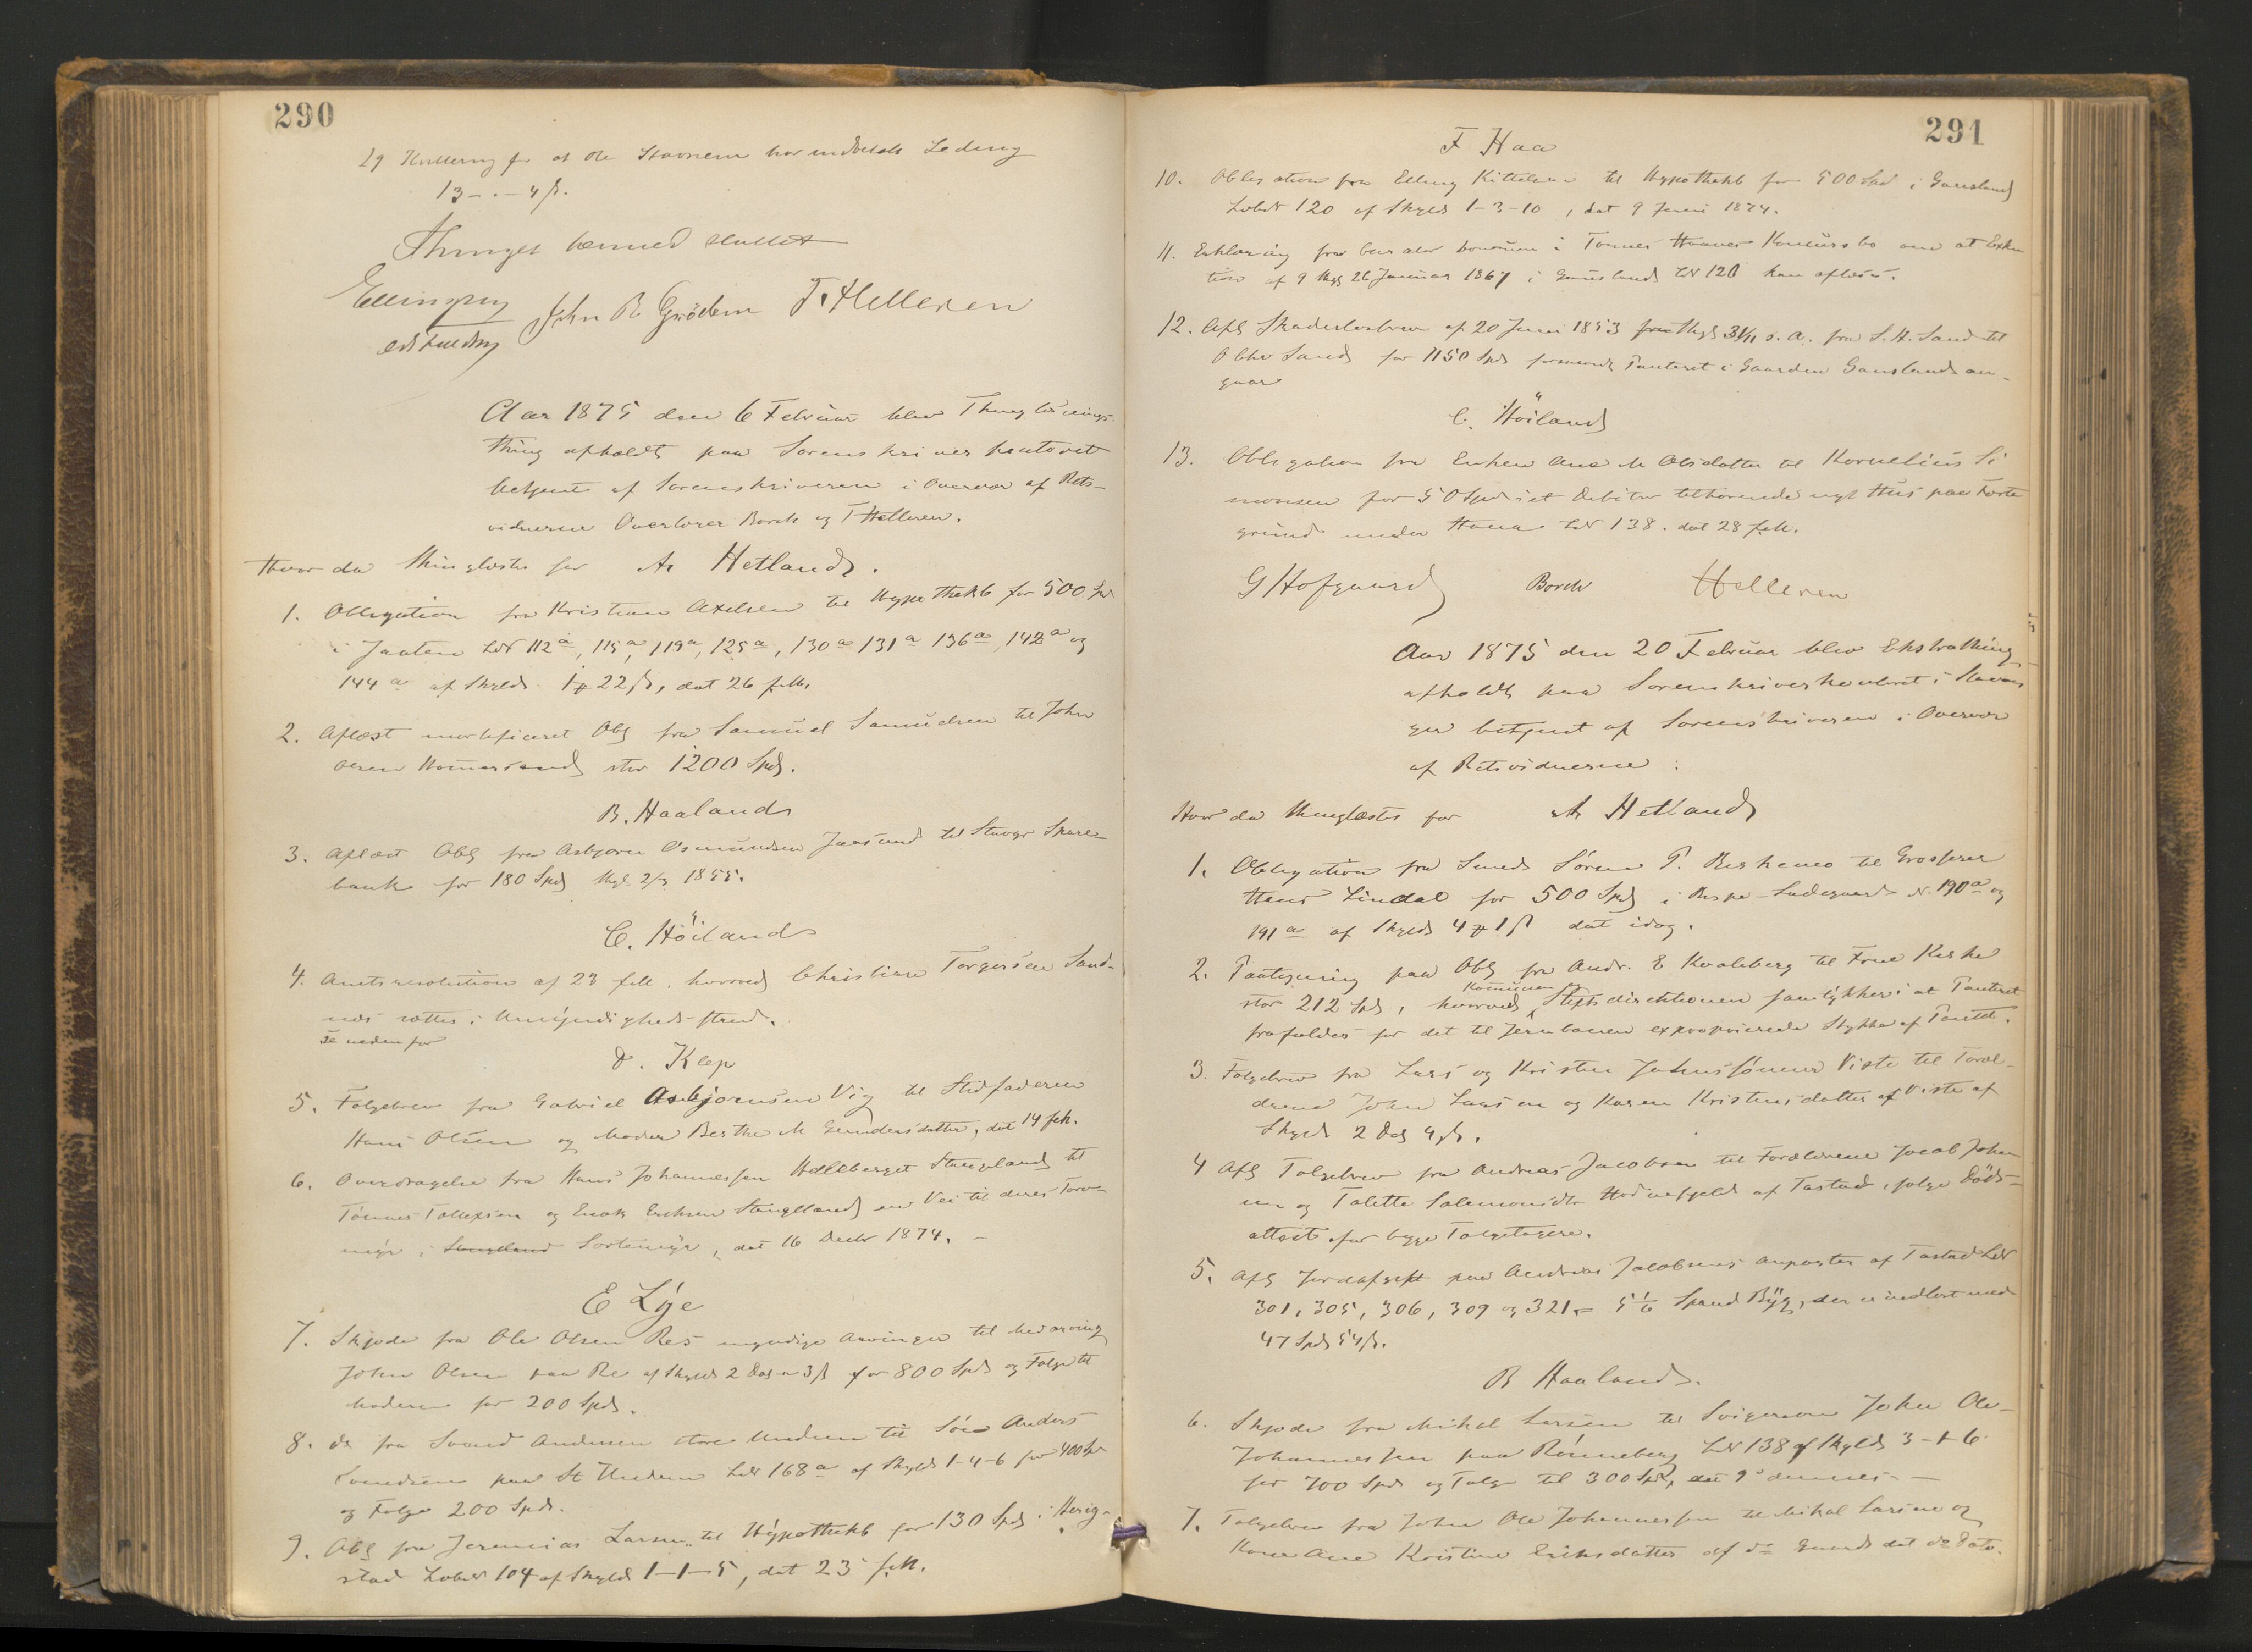 290
29 Kvittering for at Ole Stavnem har indbetalt Leding
13 - . - 4 ß.
Thinget hermed sluttet
John R. Grödem T. Helleren
Aar 1875 den 6 Februar blev Thinglæsnings-
thing afholdt paa Sorenskriverkontoret
betjent af Sorenskriveren i Overvær af Rets-
vidnerne Overlærer Borch og T Helleren.
Hvor da thinglæstes for A. Hetland.
1. Obligation fra Kristian Axelsen til Hypothekb for 500 Spd
i Jaaten LN 112 a, 115 a, 119 a, 125 a, 130 a 131 a 136 a, 142 a og
144 a af Skyld 22 ß, dat 26 f.M.
2. Aflæst mortificeret Obl fra Samuel Samuelsen til John
Olsen stor 1200 Spd.
B. Haaland
3. Aflæst Obl fra Asbjørn Osmundsen Jaasund til Stavgr Spare-
bank for 180 Spd thgl. 2/3 1855.
C. Höiland
4. Amtsresolution af 23 f.M. hvorved Christian Torgersen Sand-
nes sættes i Umyndigheds-stand.
Se nedenfor
D. Klep
5. Følgebrev fra Gabriel Asbjørnsen Vig til Stedfaderen
Hans Olsen og Moder Berthe M Gundersdatter, dat 14 f.M.
6. Overdragelse fra Hans Johannessen Helleberget Stangeland til
Tönnes Tollefsen og Enok Eriksen Stangeland en Vei til deres Torv-
myr i Stangeland Sortemyr, dat 16 Decbr 1874. -
E Lye
7. Skjøde fra Ole Olsen Res myndige Arvinger til Medarving
John Olsen paa Re af Skyld 2 Dal 3 ß for 800 Spd og Følge til
Moderen for 200 Spd.
8. do fra Svend Andersen store Undem til Søn Anders
Svendsen paa St Undem LN 168 a af Skyld 1-4-6 for 400 Spd
og Følge 200 Spd.
9. Obl fra Jeremias Larsen til Hypothekb for 130 Spd i Herig-
stad LobN 104 af Skyld 1-1-5, dat 23 f.M.
291
F Haa
10. Obligation fra Elling Kittelsen til Hypothekb for 500 Spd i Gausland
LobN 120 af Skyld 1-3-10, dat 9 Juni 1874.
11. Erklæring fra Curator bonorum i Tönnes Konkursbo om at Exku
tion af 9 thgl 26 Januar 1867 i Gausland LN 120 kan aflæses.
12. Afl Skadesløsbrev af 20 Juni 1853 thgl s. A. fra S. H. Sand til
Sand for 1150 Spd forsaavidt Panteret i Gaarden Gausland an-
gaar
C. Höiland
13. Obligation fra Enken Ane M Olsdatter til Kornelius Si
monsen for 50 Spd i et Debitor tilhørende nyt Hus paa Feste
grund under Hana LN 138. dat 28 f.M.
G Hofgaard Borch Helleren
Aar 1875 den 20 Februar blev Ekstrathing
afholdt paa Sorenskriverkontoret i Stavan
ger betjent af Sorenskriveren i Overvær
af Retsvidnerne :
Hvor da thinglæstes for A Hetland
1. Obligation fra Smed Sören P. til Grosserer
Hans Lindal for 500 Spd i Bispe-Ladegaard N. 190 a og
191 a af Skyld 4 1 ß dat idag.
2. Paategning paa Obl fra Andr. E Kvaleberg til Frue Kirke
stor 212 Spd, hvorved Kommunen og Stiftsdirektionen samtykker i at Panteret
frafaldes for det til Jernbanen exproprierede Stykke af Pantet.
3. Følgebrev fra Lars og Kristen Johnssönner Viste til Foræl-
drene John Larsen og Karen Kristensdatter af Viste af
Skyld 2 Dal 4 ß.
4 Afl Følgebrev fra Andreas Jacobsen til Forældrene Jacob Johan
nes og Talette Salemonsdtr Hodnefjeld af Tastad, ifølge Döds-
attest for begge Følgetagere.
5. Afl Jordafgift paa Andreas Jacobsens Anparter af Tastad LN
301, 305, 306, 309 og 321 = 5 1/6 Spand Byg, der er indløst med
47 Spd 54 ß.
B Haaland.
6. Skjøde fra Mikal Larsen til Svigersøn John Ole
Johannessen paa Rönneberg LN 138 af Skyld 3-1-6
for 700 Spd og Følge til 300 Spd, dat 9 dennes -
7. Følgebrev fra John Ole Johannessen til Mikal Larsen og
Kone Ane Kristine Eriksdatter af do Gaard dat do Dato.